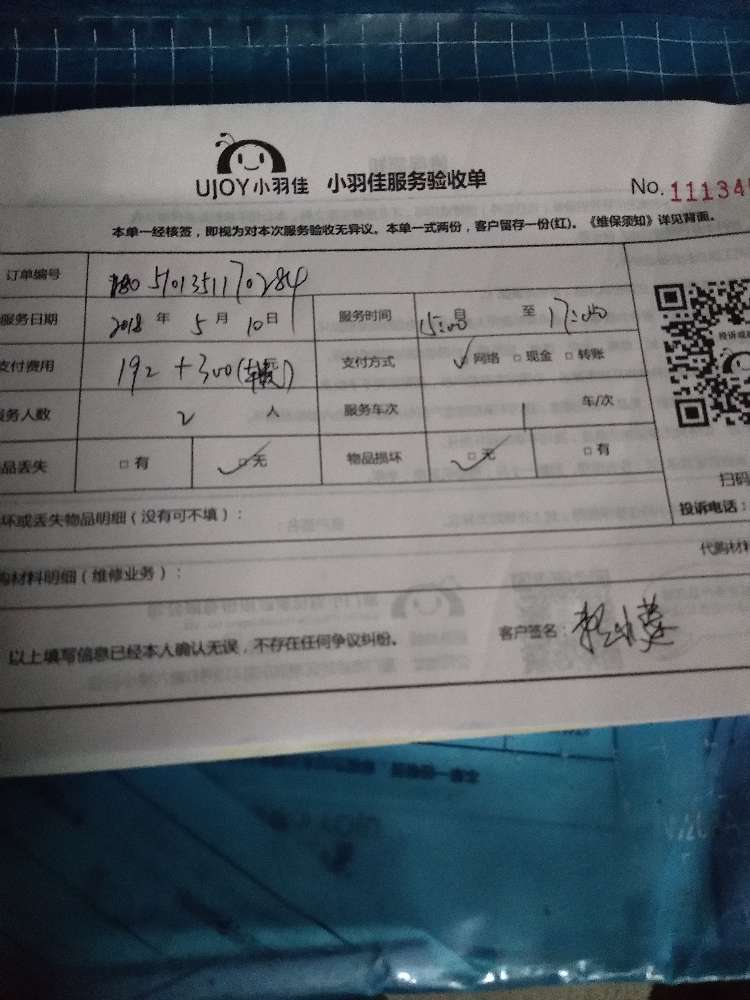 UJOY小羽佳 小羽佳服务验收单
No. 11134
本单一经核签，即视为对本次服务验收无异议。本单一式两份，客户留存一份(红)。《维保须知》详见背面。
订单编号 1805101351170284
服务日期 2018 年 5 月 10 日 服务时间 15:00 至 17:00
支付费用 192 + 300 支付方式 ✓网络 □现金 □转账
服务人数 2 人 服务车次 1 车/次
品丢失 □有 ✓无 物品损坏 ✓无 □有
扫码
坏或丢失物品明细（没有可不填）：
投诉电话：
购材料明细（维修业务）：
代购材料
以上填写信息已经本人确认无误，不存在任何争议纠纷。
客户签名：